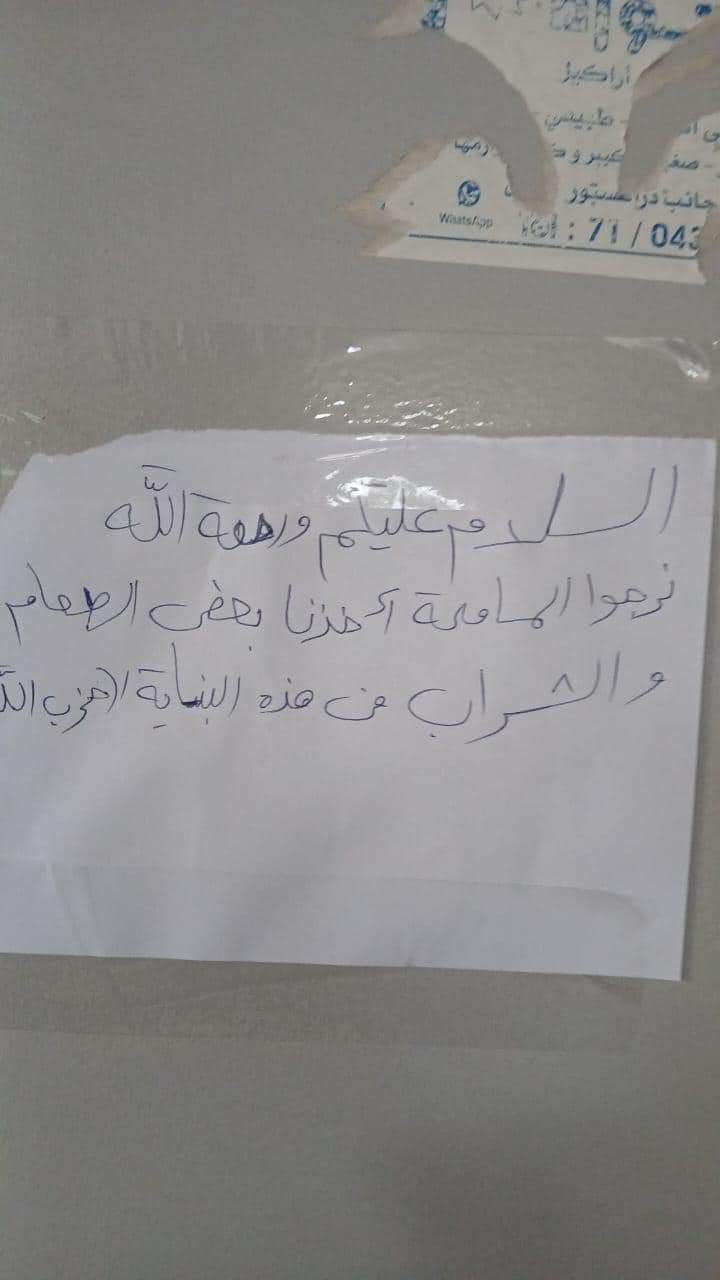 أراكيل
طنبيس
صغير
كبير و
جانب
ستور
WhatsApp
Tel : 71 / 043
السلام عليكم ورحمة الله
نرجوا المسامحة أخذنا بعض الطعام
والشراب من هذه البناية / حزب الله